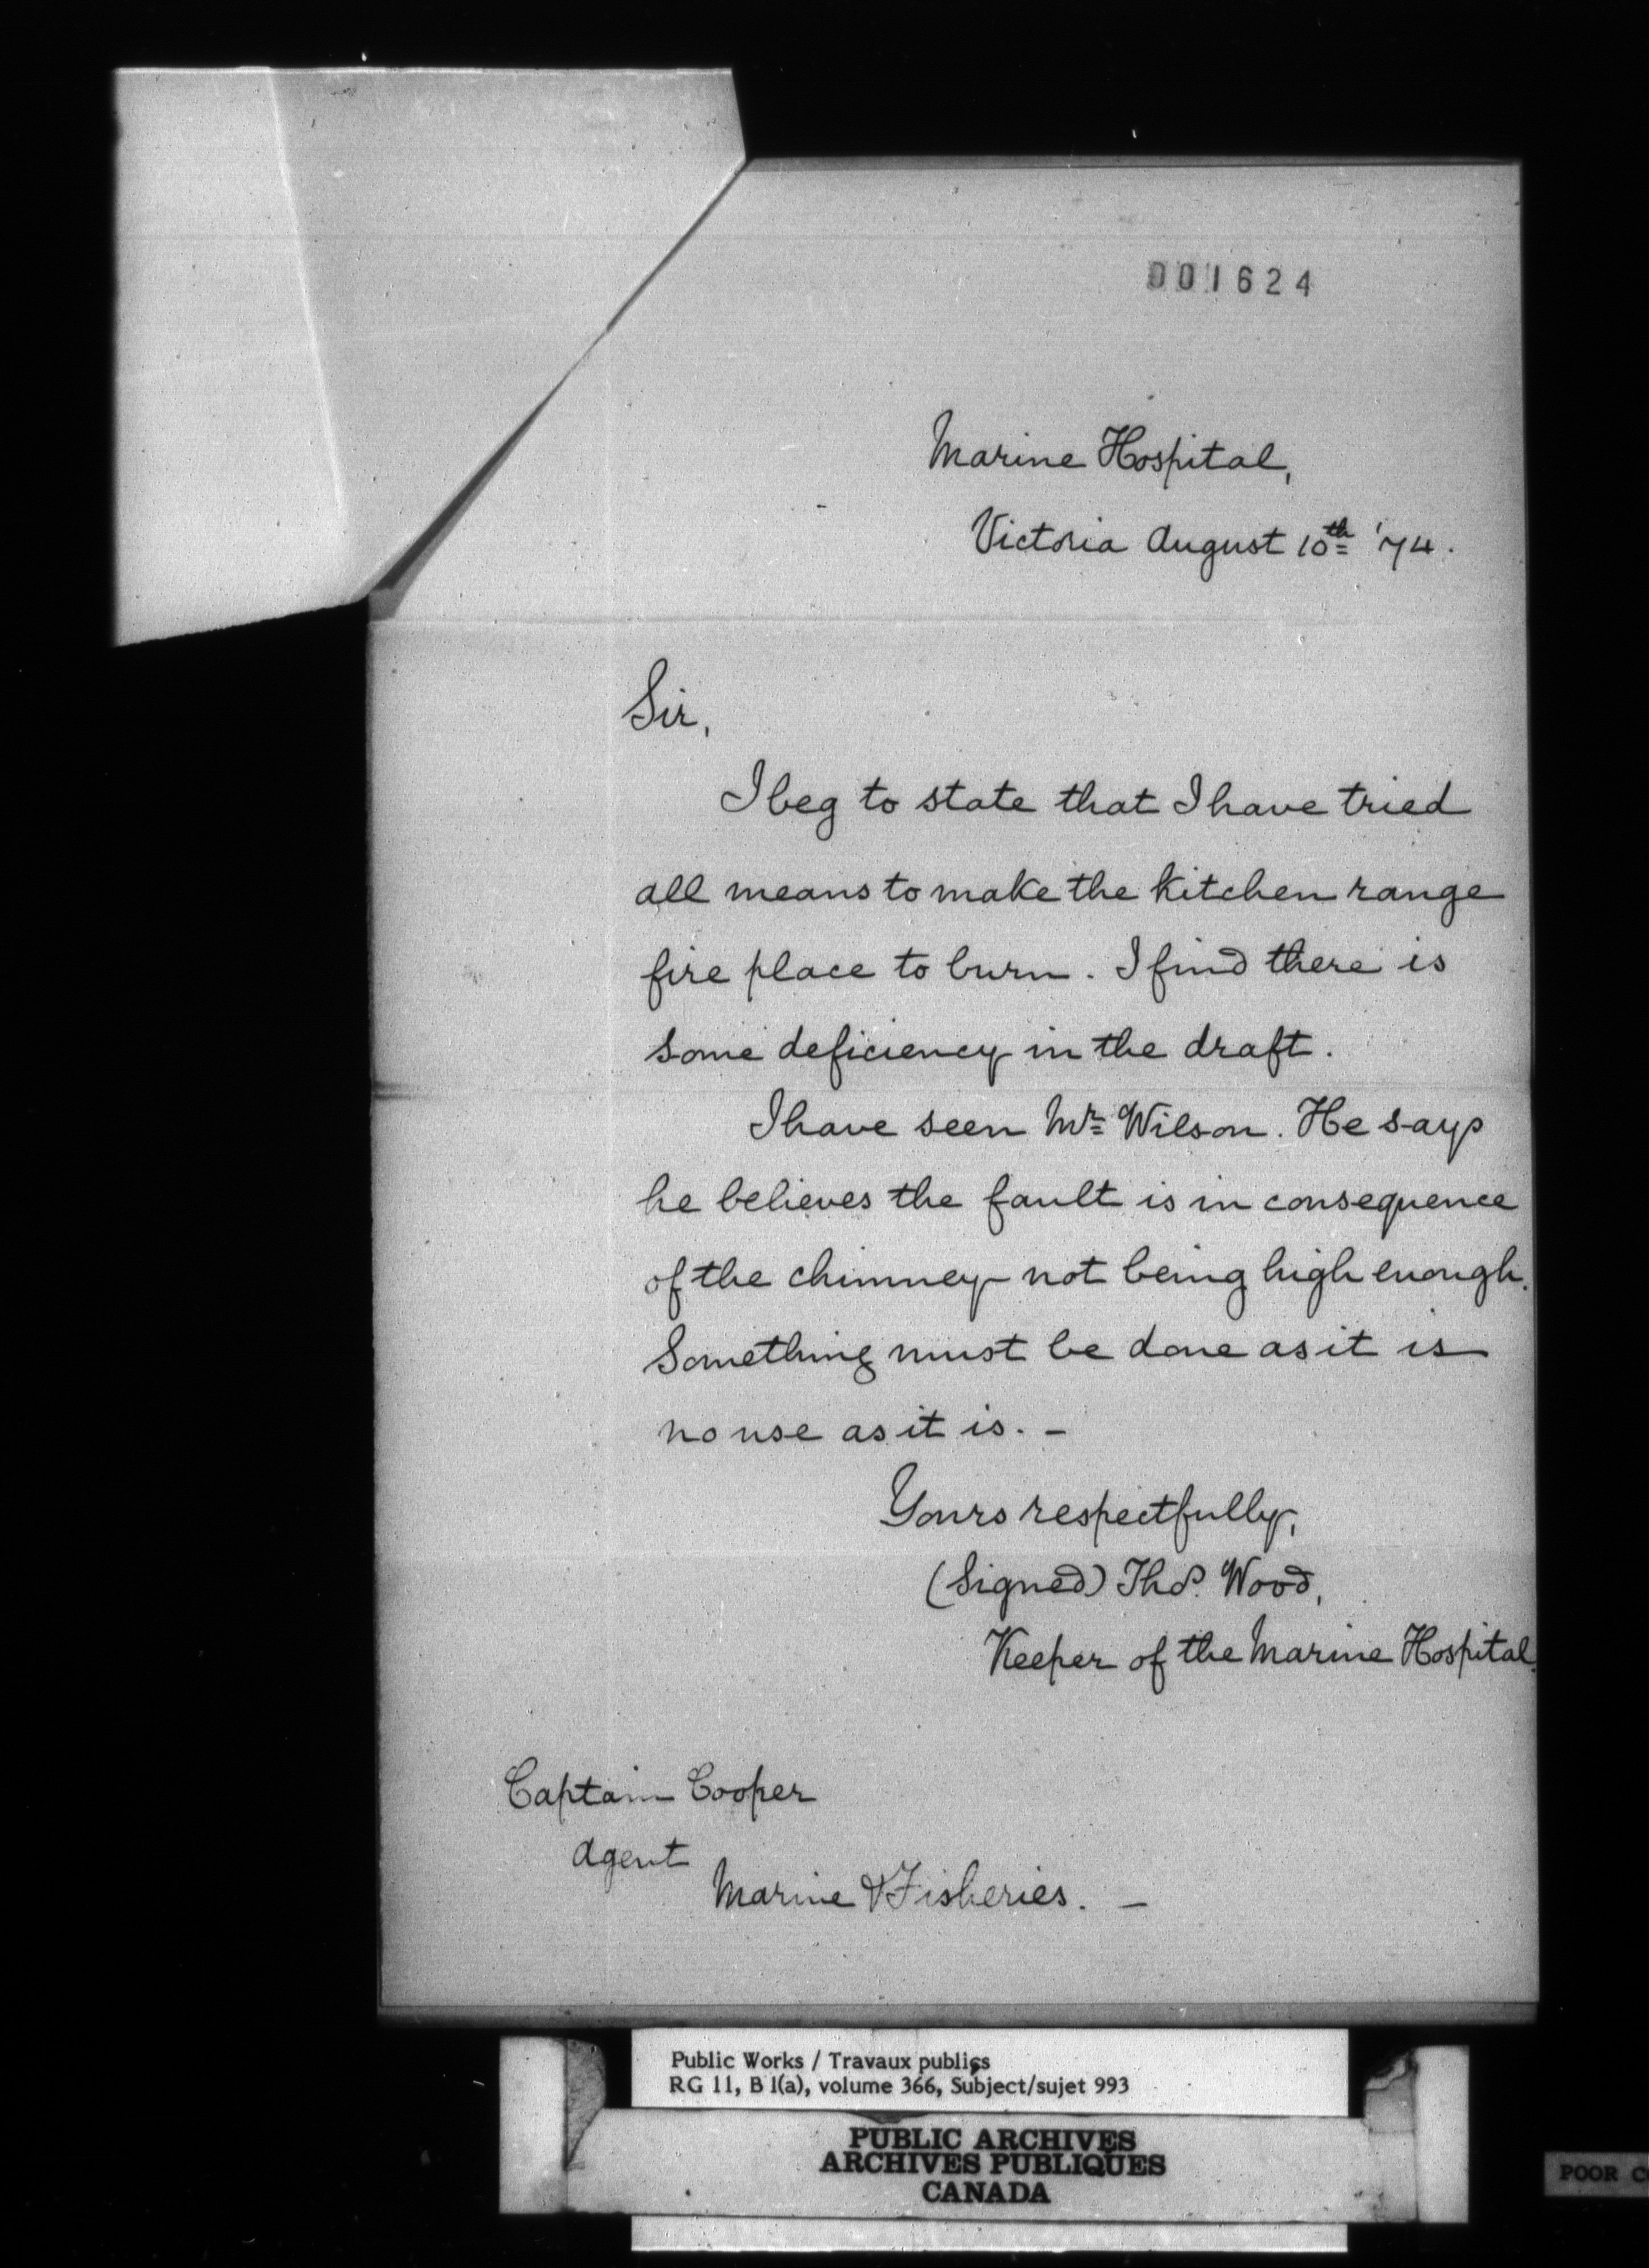 001624
Marine Hospital,
Victoria August 10th '74.
Sir,
I beg to state that I have tried
all means to make the kitchen range
fire place to burn. I find there is
some deficiency in the draft.
I have seen Mr Wilson. He says
he believes the fault is in consequence
of the chimney not being high enough.
Something must be done as it is
no use as it is. —
Yours respectfully,
(Signed) Thos. Wood,
Keeper of the Marine Hospital.
Captain Cooper
Agent
Marine & Fisheries. —
Public Works / Travaux publics
RG 11, B 1(a), volume 366, Subject/sujet 993
PUBLIC ARCHIVES
ARCHIVES PUBLIQUES
CANADA
POOR